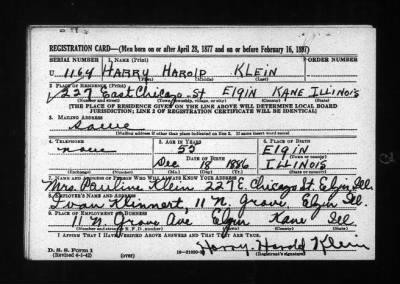 REGISTRATION CARD—(Men born on or after April 28, 1877 and on or before February 16, 1897)
SERIAL NUMBER 1. NAME (Print) ORDER NUMBER
U 1164 HARRY HAROLD KLEIN
(First) (Middle) (Last)
2. PLACE OF RESIDENCE (Print)
227 East Chicago St ELGIN KANE ILLINOIS
(Number and street) (Town, township, village, or city) (County) (State)
[THE PLACE OF RESIDENCE GIVEN ON THE LINE ABOVE WILL DETERMINE LOCAL BOARD
JURISDICTION; LINE 2 OF REGISTRATION CERTIFICATE WILL BE IDENTICAL]
3. MAILING ADDRESS
Same
[Mailing address if other than place indicated on line 2. If same insert word same]
4. TELEPHONE 5. AGE IN YEARS 6. PLACE OF BIRTH
none 55 ELGIN
DATE OF BIRTH (Town or county)
Dec 18 1886 ILLINOIS
(Exchange) (Number) (Mo.) (Day) (Yr.) (State or country)
7. NAME AND ADDRESS OF PERSON WHO WILL ALWAYS KNOW YOUR ADDRESS
Mrs. Pauline Klein 227 E. Chicago St. Elgin Ill.
8. EMPLOYER'S NAME AND ADDRESS
Ivan Klinnert, 11 N. Grove, Elgin Ill.
9. PLACE OF EMPLOYMENT OR BUSINESS
11 N. Grove Ave Elgin Kane Ill
(Number and street or R. F. D. number) (Town) (County) (State)
I AFFIRM THAT I HAVE VERIFIED ABOVE ANSWERS AND THAT THEY ARE TRUE.
D. S. S. Form 1
(Revised 4-1-42) (over)
Harry Harold Klein
(Registrant's signature)